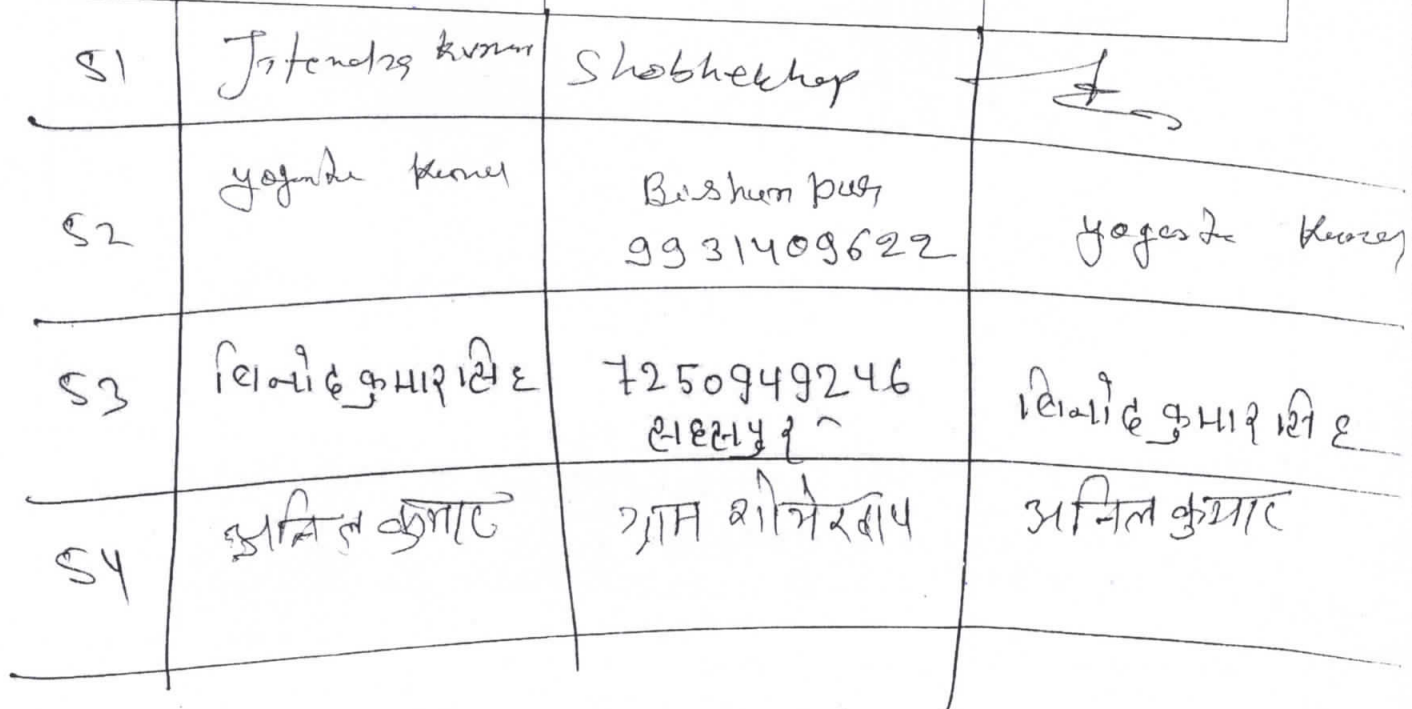 51 Jitendra kumar Shobhekhap
52 yogendra kumar Bishunpur
9931409622 yogendra kumar
53 विनोद कुमार सिंह 7250949246 विनोद कुमार सिंह
54 अनिल कुमार ग्राम शोभेखाप अनिल कुमार